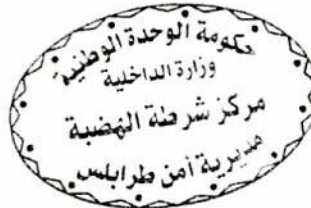 حكومة الوحدة الوطنية
وزارة الداخلية
مركز شرطة الهضبة
مديرية أمن طرابلس